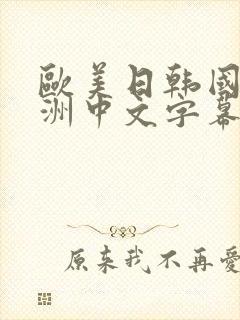 歐美日韓國
洲中文字幕
原来我不再愛